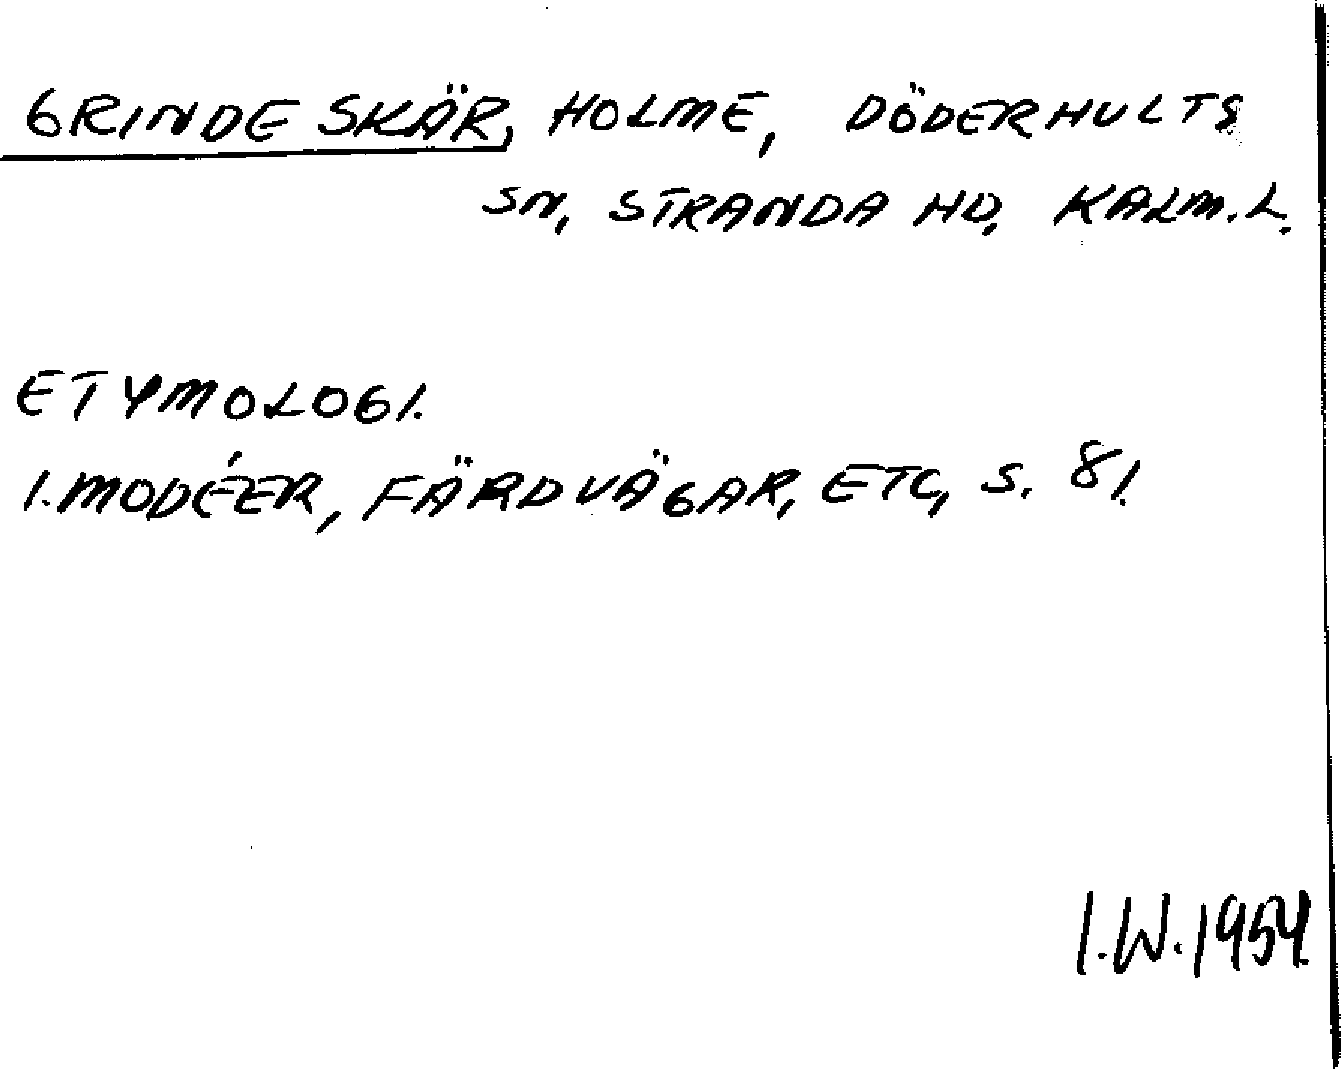 GRINDESKÄR, HOLME, DÖDERHULTS
SN, STRANDA HD, KALM. L.
ETYMOLOGI.
I. MODÉER, FÄRDVÄGAR, ETC, S. 81.
I.W. 1954.